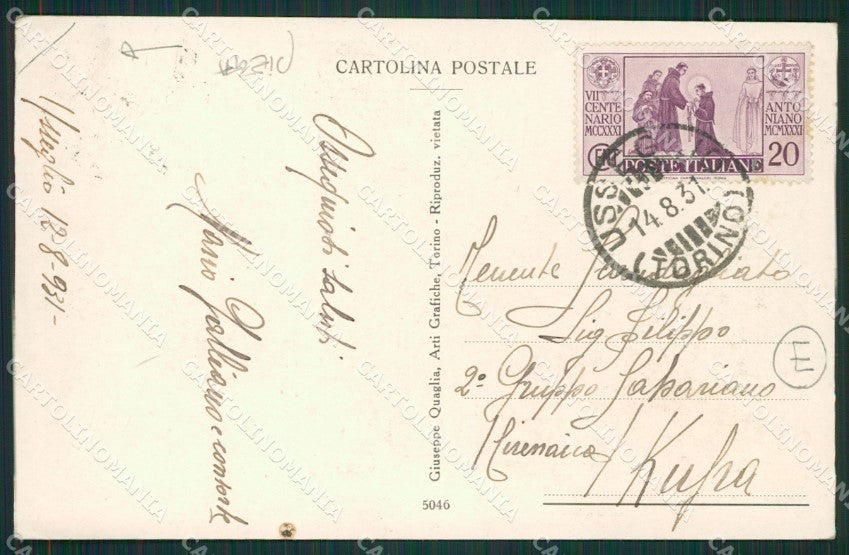 CARTOLINA POSTALE
VII
CENTE
NARIO
MCCXXXI
ANTO
NIANO
MCMXXXI
POSTE ITALIANE 20
USSEGLIO
14.8.31.
(TORINO)
Usseglio 12-8-931-
Ossequiosi saluti
Mario Galliano e consorte
Giuseppe Quaglia, Arti Grafiche, Torino - Riproduz. vietata
5046
Tenente
Sig Filippo
2º Gruppo Sahariano
(Cirenaica) Kufra
CARTOLINOMANIA